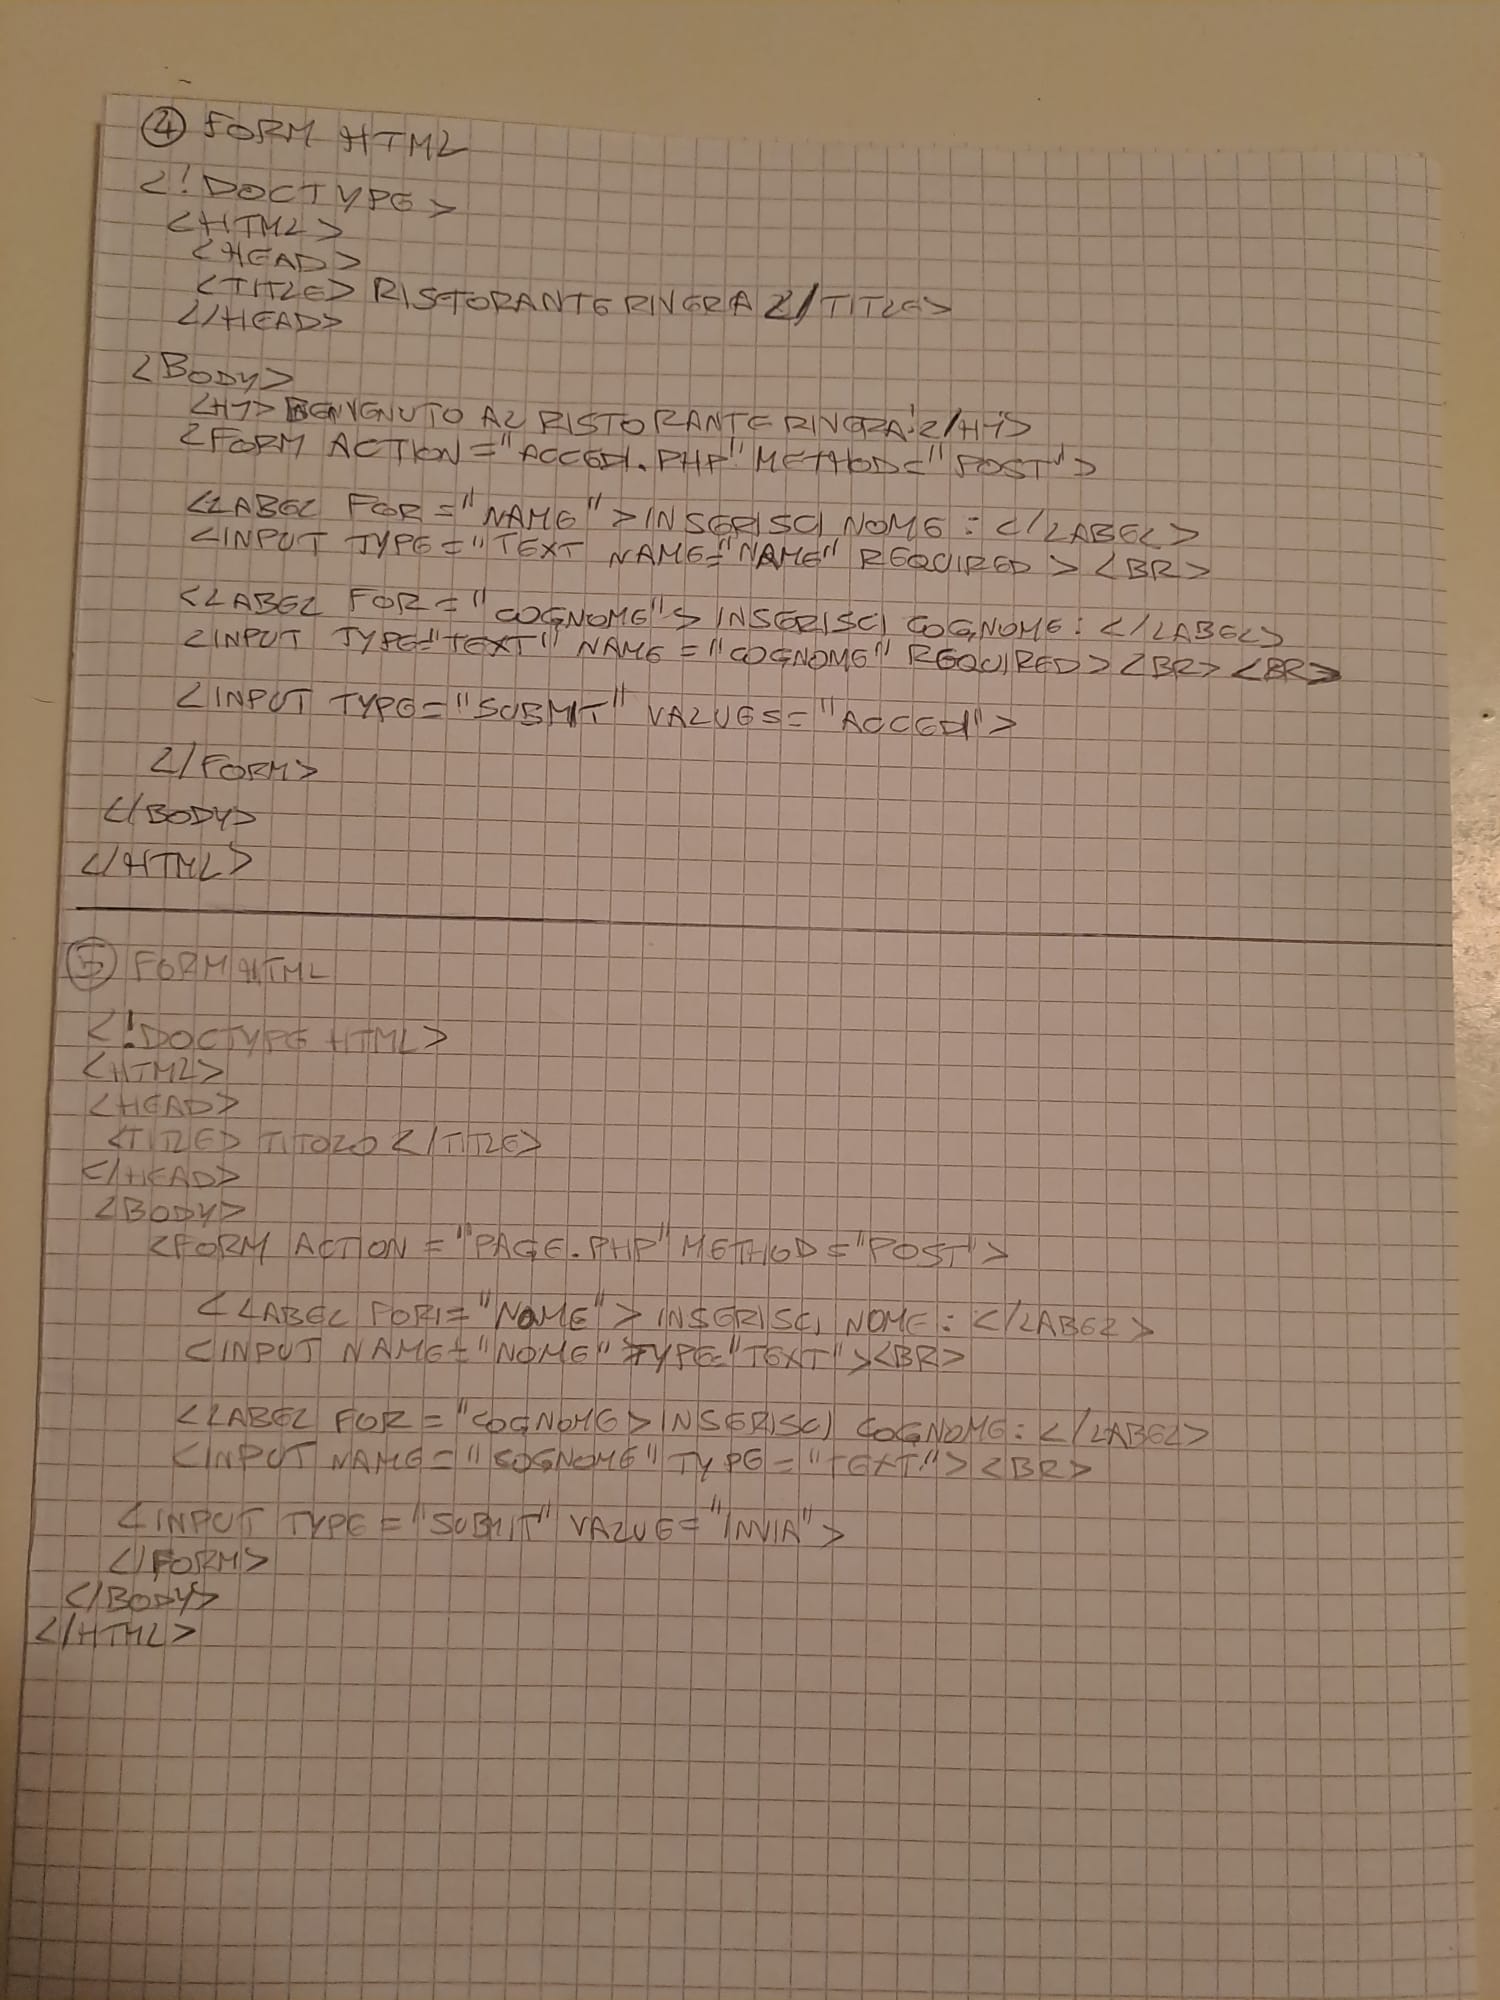 ④ FORM HTML
<!DOCTYPE>
<HTML>
<HEAD>
<TITLE> RISTORANTE RIVERA </TITLE>
</HEAD>
<BODY>
<H1> BENVENUTO AL RISTORANTE RIVERA! </H1>
<FORM ACTION = "ACCEDI.PHP" METHOD = "POST">
<LABEL FOR = "NAME" > INSERISCI NOME : </LABEL>
<INPUT TYPE = "TEXT NAME="NAME" REQUIRED > <BR>
<LABEL FOR = "COGNOME"> INSERISCI COGNOME : </LABEL>
<INPUT TYPE="TEXT" NAME = "COGNOME" REQUIRED> <BR> <BR>
<INPUT TYPE= "SUBMIT" VALUES= "ACCEDI">
</FORM>
</BODY>
</HTML>
⑤ FORM HTML
<!DOCTYPE HTML>
<HTML>
<HEAD>
<TITLE> TITOLO </TITLE>
</HEAD>
<BODY>
<FORM ACTION = "PAGE.PHP" METHOD = "POST">
<LABEL FOR= "NOME" > INSERISCI NOME : </LABEL>
<INPUT NAME= "NOME" TYPE="TEXT"><BR>
<LABEL FOR = "COGNOME > INSERISCI COGNOME : </LABEL>
<INPUT NAME = "COGNOME" TYPE = "TEXT"> <BR>
<INPUT TYPE = "SUBMIT" VALUE = "INVIA">
</FORM>
</BODY>
</HTML>